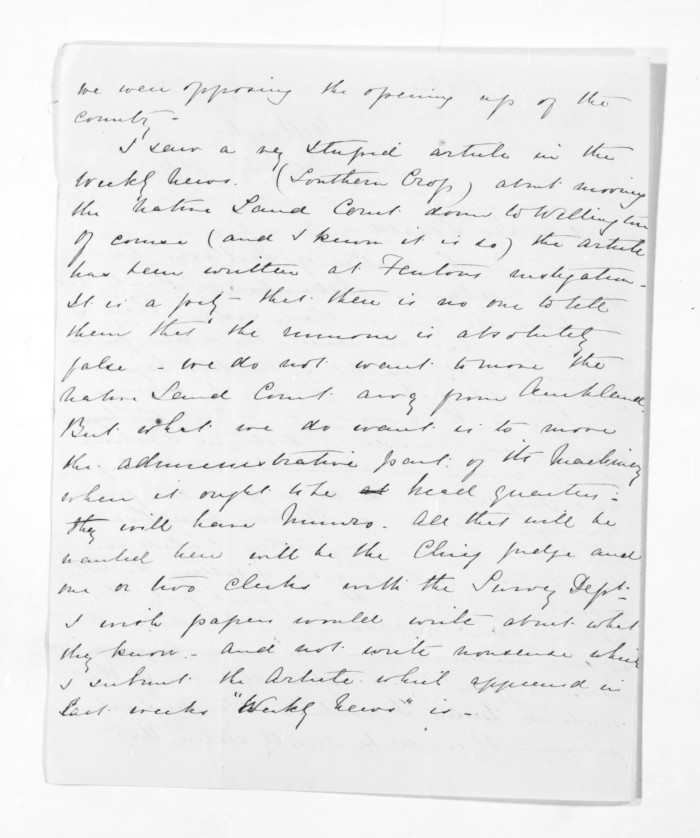 we were opposing the opening up of the
country -
I saw a very stupid article in the
Weekly News. (Southern Cross) about moving
the Native Land Court down to Wellington
Of course (and I know it is so) the article
has been written at Fentons instigation -
It is a pity - that there is no one to tell
them that the rumour is absolutely
false - we do not want to move the
Native Land Court away from Auckland.
But what we do want is to move
the administrative part of its Machinery
when it ought to be at head quarters -
they will have Munro. All that will be
wanted here will be the Chief Judge and
one or two clerks with the Survey Dept -
I wish papers would write about what
they know - and not write nonsense which
I submit the Article which appeared in
last weeks "Weekly News" is -